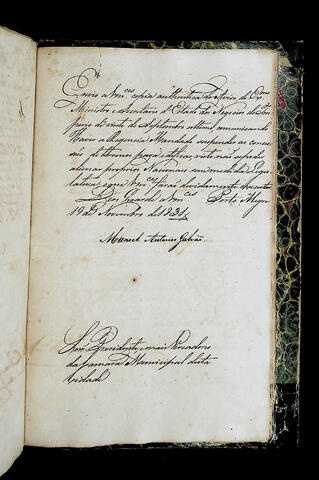 Envio a Vm.ces copia authentica do Officio do Ex.mo
Ministro e Secretario d'Estado dos Negocios do Im-
perio de vinte de Septembro ultimo communicando
Haver a Regencia Mandado suspender as conces-
sões de terrenos para edificar, visto não se poder
alienar proprios Nacionaes sem medida Legis-
lativa; o que Vm.ces farão devidamente executar
Deos Guarde a Vm.ces Porto Alegre
19 de Novembro de 1831
Manoel Antonio Galvão
Snr.es Presidente e mais Vereadores
da Camara Municipal desta
Cidade